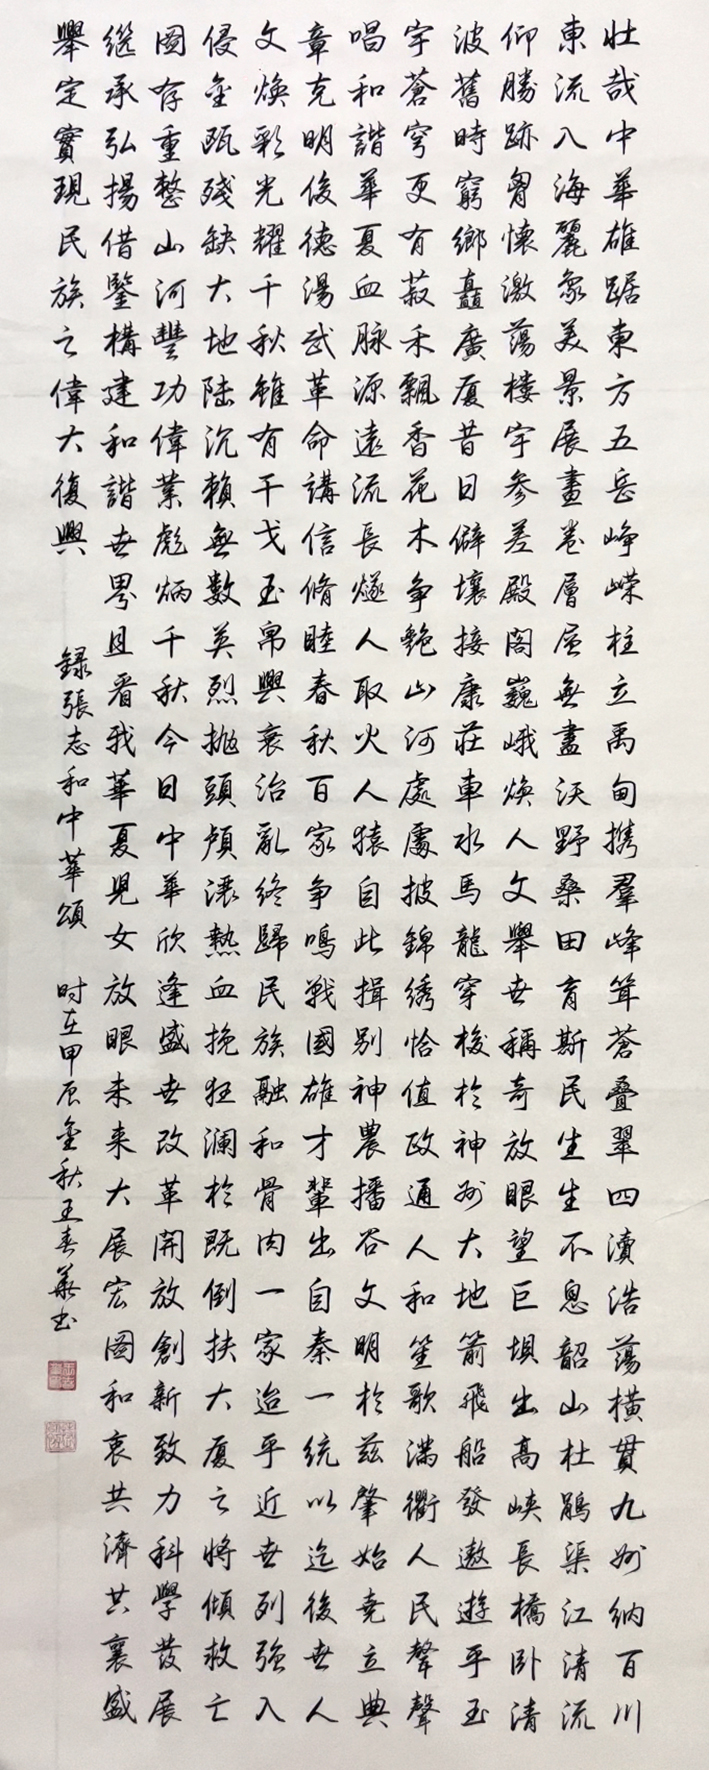 壯哉中華雄踞東方五岳崢嶸柱立禹甸攜羣峰聳蒼疊翠四瀆浩蕩橫貫九州納百川
東流入海麗象美景展畫卷層層無盡沃野桑田育斯民生生不息韶山杜鵑渠江清流
仰勝跡胷懷激蕩樓宇參差殿閣巍峨煥人文舉世稱奇放眼望巨壩出高峽長橋卧清
波舊時窮鄉矗廣厦昔日僻壤接康莊車水馬龍穿梭於神州大地箭飛船發遨遊乎玉
宇蒼穹更有菽禾飄香花木争艷山河處處披錦绣恰值政通人和笙歌滿衢人民聲聲
唱和諧華夏血脉源遠流長燧人取火人猿自此揖别神農播谷文明於兹肇始堯立典
章克明俊德湯武革命講信脩睦春秋百家争鳴戰國雄才輩出自秦一統以迄後世人
文焕彩光耀千秋雖有干戈玉帛興衰治亂終歸民族融和骨肉一家迨乎近世列强入
侵金甌殘缺大地陆沉賴無數英烈抛頭顱灑熱血挽狂澜於既倒扶大厦之將傾救亡
圖存重整山河豐功偉業彪炳千秋今日中華欣逢盛世改革開放創新致力科學發展
繼承弘揚借鑒構建和諧世界且看我華夏兒女放眼未来大展宏圖和衷共濟共襄盛
舉定實現民族之偉大復興
録張志和中華頌 时在甲辰金秋王春華书